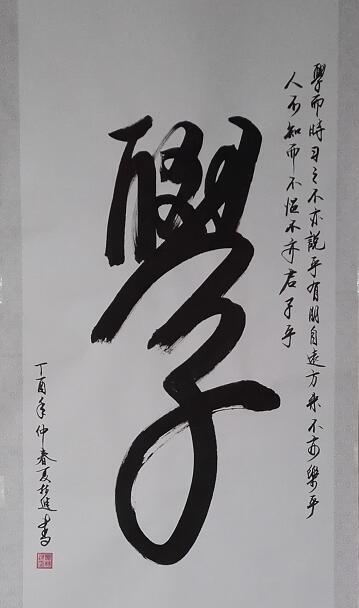 學而時习之不亦說乎有朋自遠方來不亦樂乎
人不知而不慍不亦君子乎
學
丁酉年仲春夏書